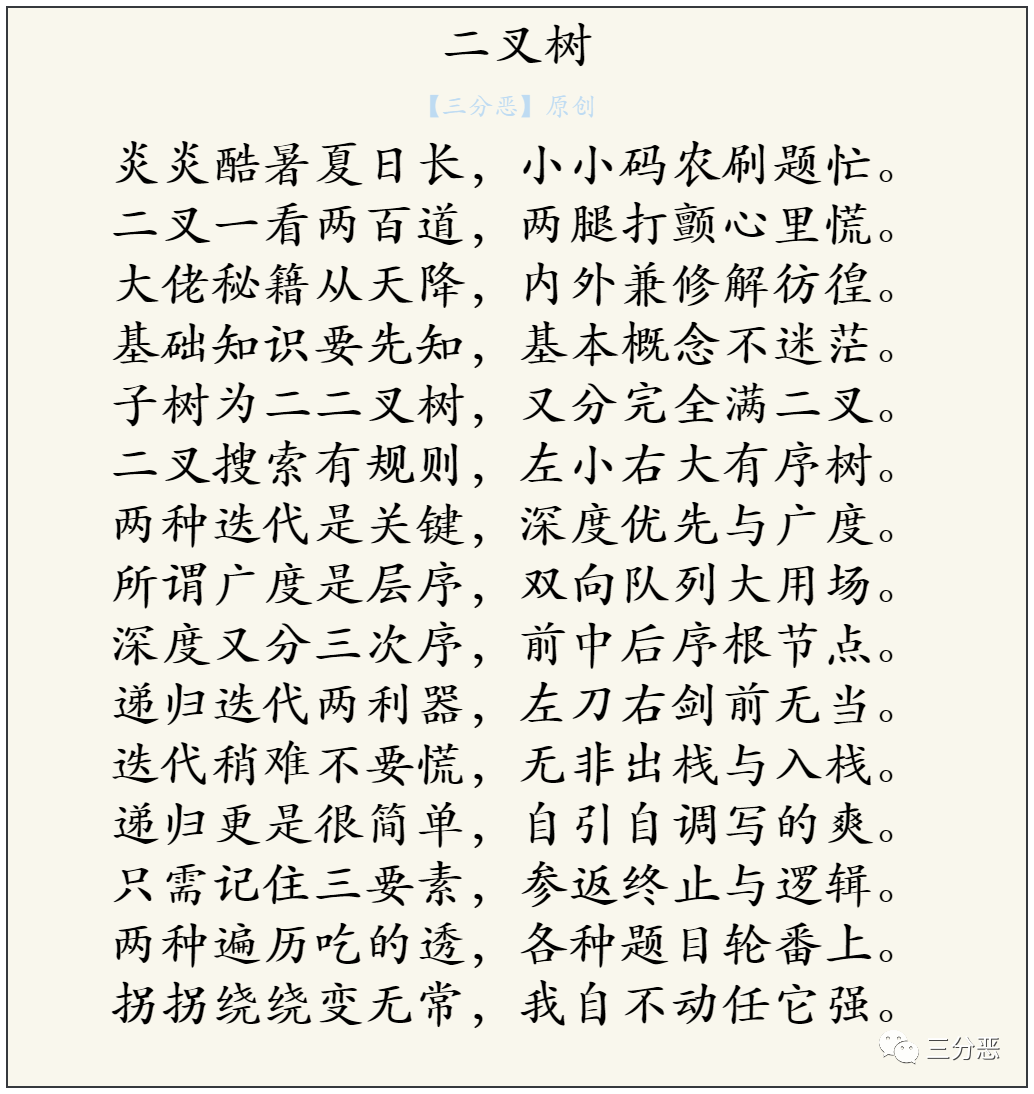 二叉树
【三分恶】原创
炎炎酷暑夏日长，小小码农刷题忙。
二叉一看两百道，两腿打颤心里慌。
大佬秘籍从天降，内外兼修解彷徨。
基础知识要先知，基本概念不迷茫。
子树为二二叉树，又分完全满二叉。
二叉搜索有规则，左小右大有序树。
两种迭代是关键，深度优先与广度。
所谓广度是层序，双向队列大用场。
深度又分三次序，前中后序根节点。
递归迭代两利器，左刀右剑前无当。
迭代稍难不要慌，无非出栈与入栈。
递归更是很简单，自引自调写的爽。
只需记住三要素，参返终止与逻辑。
两种遍历吃的透，各种题目轮番上。
拐拐绕绕变无常，我自不动任它强。
三分恶